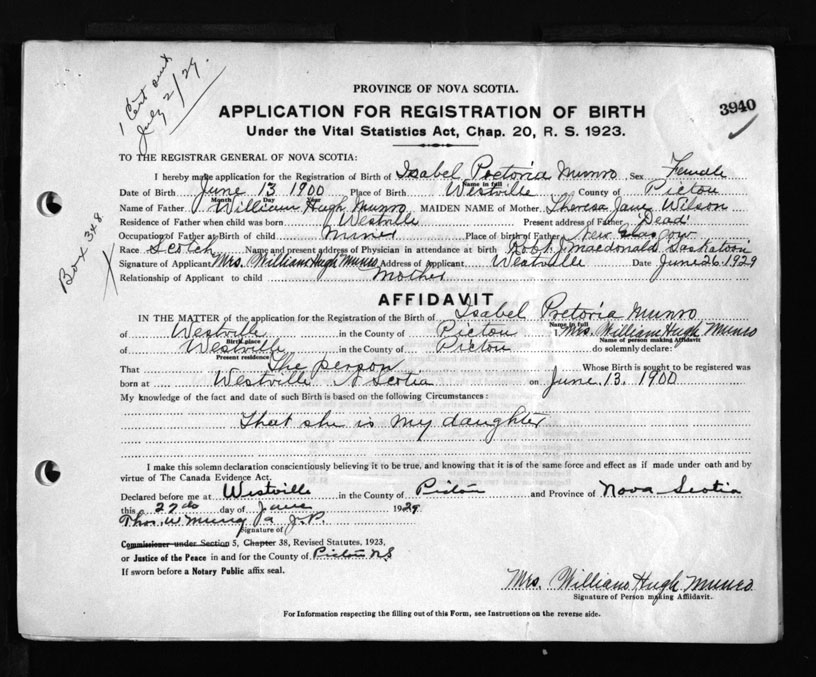 1 Cert sent
July 2/29.
PROVINCE OF NOVA SCOTIA.
APPLICATION FOR REGISTRATION OF BIRTH
3940
Under the Vital Statistics Act, Chap. 20, R. S. 1923.
TO THE REGISTRAR GENERAL OF NOVA SCOTIA:
I hereby make application for the Registration of Birth of Isabel Pretoria Munro Sex Female
Name in full
Date of Birth June 13 1900 Place of Birth Westville County of Pictou
Month Day Year
Name of Father William Hugh Munro MAIDEN NAME of Mother Theresa Jane Wilson
Residence of Father when child was born Westville Present address of Father Dead
Occupation of Father at Birth of child Miner Place of birth of Father New Glasgow
Race Scotch Name and present address of Physician in attendance at birth Macdonald Saskatoon
Signature of Applicant Mrs. William Hugh Munro Address of Applicant Westville Date June 26, 1929
Relationship of Applicant to child Mother
Box 348
AFFIDAVIT
IN THE MATTER of the application for the Registration of the Birth of Isabel Pretoria Munro
Name in full
of Westville in the County of Pictou I, Mrs. William Hugh Munro
Birth place Name of person making Affidavit
of Westville in the County of Pictou do solemnly declare:
Present residence
That The person Whose Birth is sought to be registered was
born at Westville N Scotia on June 13. 1900
My knowledge of the fact and date of such Birth is based on the following Circumstances:
That she is my daughter
I make this solemn declaration conscientiously believing it to be true, and knowing that it is of the same force and effect as if made under oath and by
virtue of The Canada Evidence Act.
Declared before me at Westville in the County of Pictou and Province of Nova Scotia
this 27th day of June 1929.
Thos. W J.P.
Signature of
Commissioner under Section 5, Chapter 38, Revised Statutes, 1923,
or Justice of the Peace in and for the County of Pictou N.S
If sworn before a Notary Public affix seal.
Mrs. William Hugh Munro
Signature of Person making Affidavit.
For Information respecting the filling out of this Form, see Instructions on the reverse side.